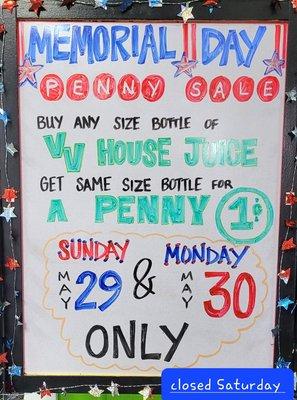 MEMORIAL DAY
PENNY SALE
BUY ANY SIZE BOTTLE OF
VV HOUSE JUICE
GET SAME SIZE BOTTLE FOR
A PENNY 1¢
SUNDAY MONDAY
MAY 29 & MAY 30
ONLY
closed Saturday